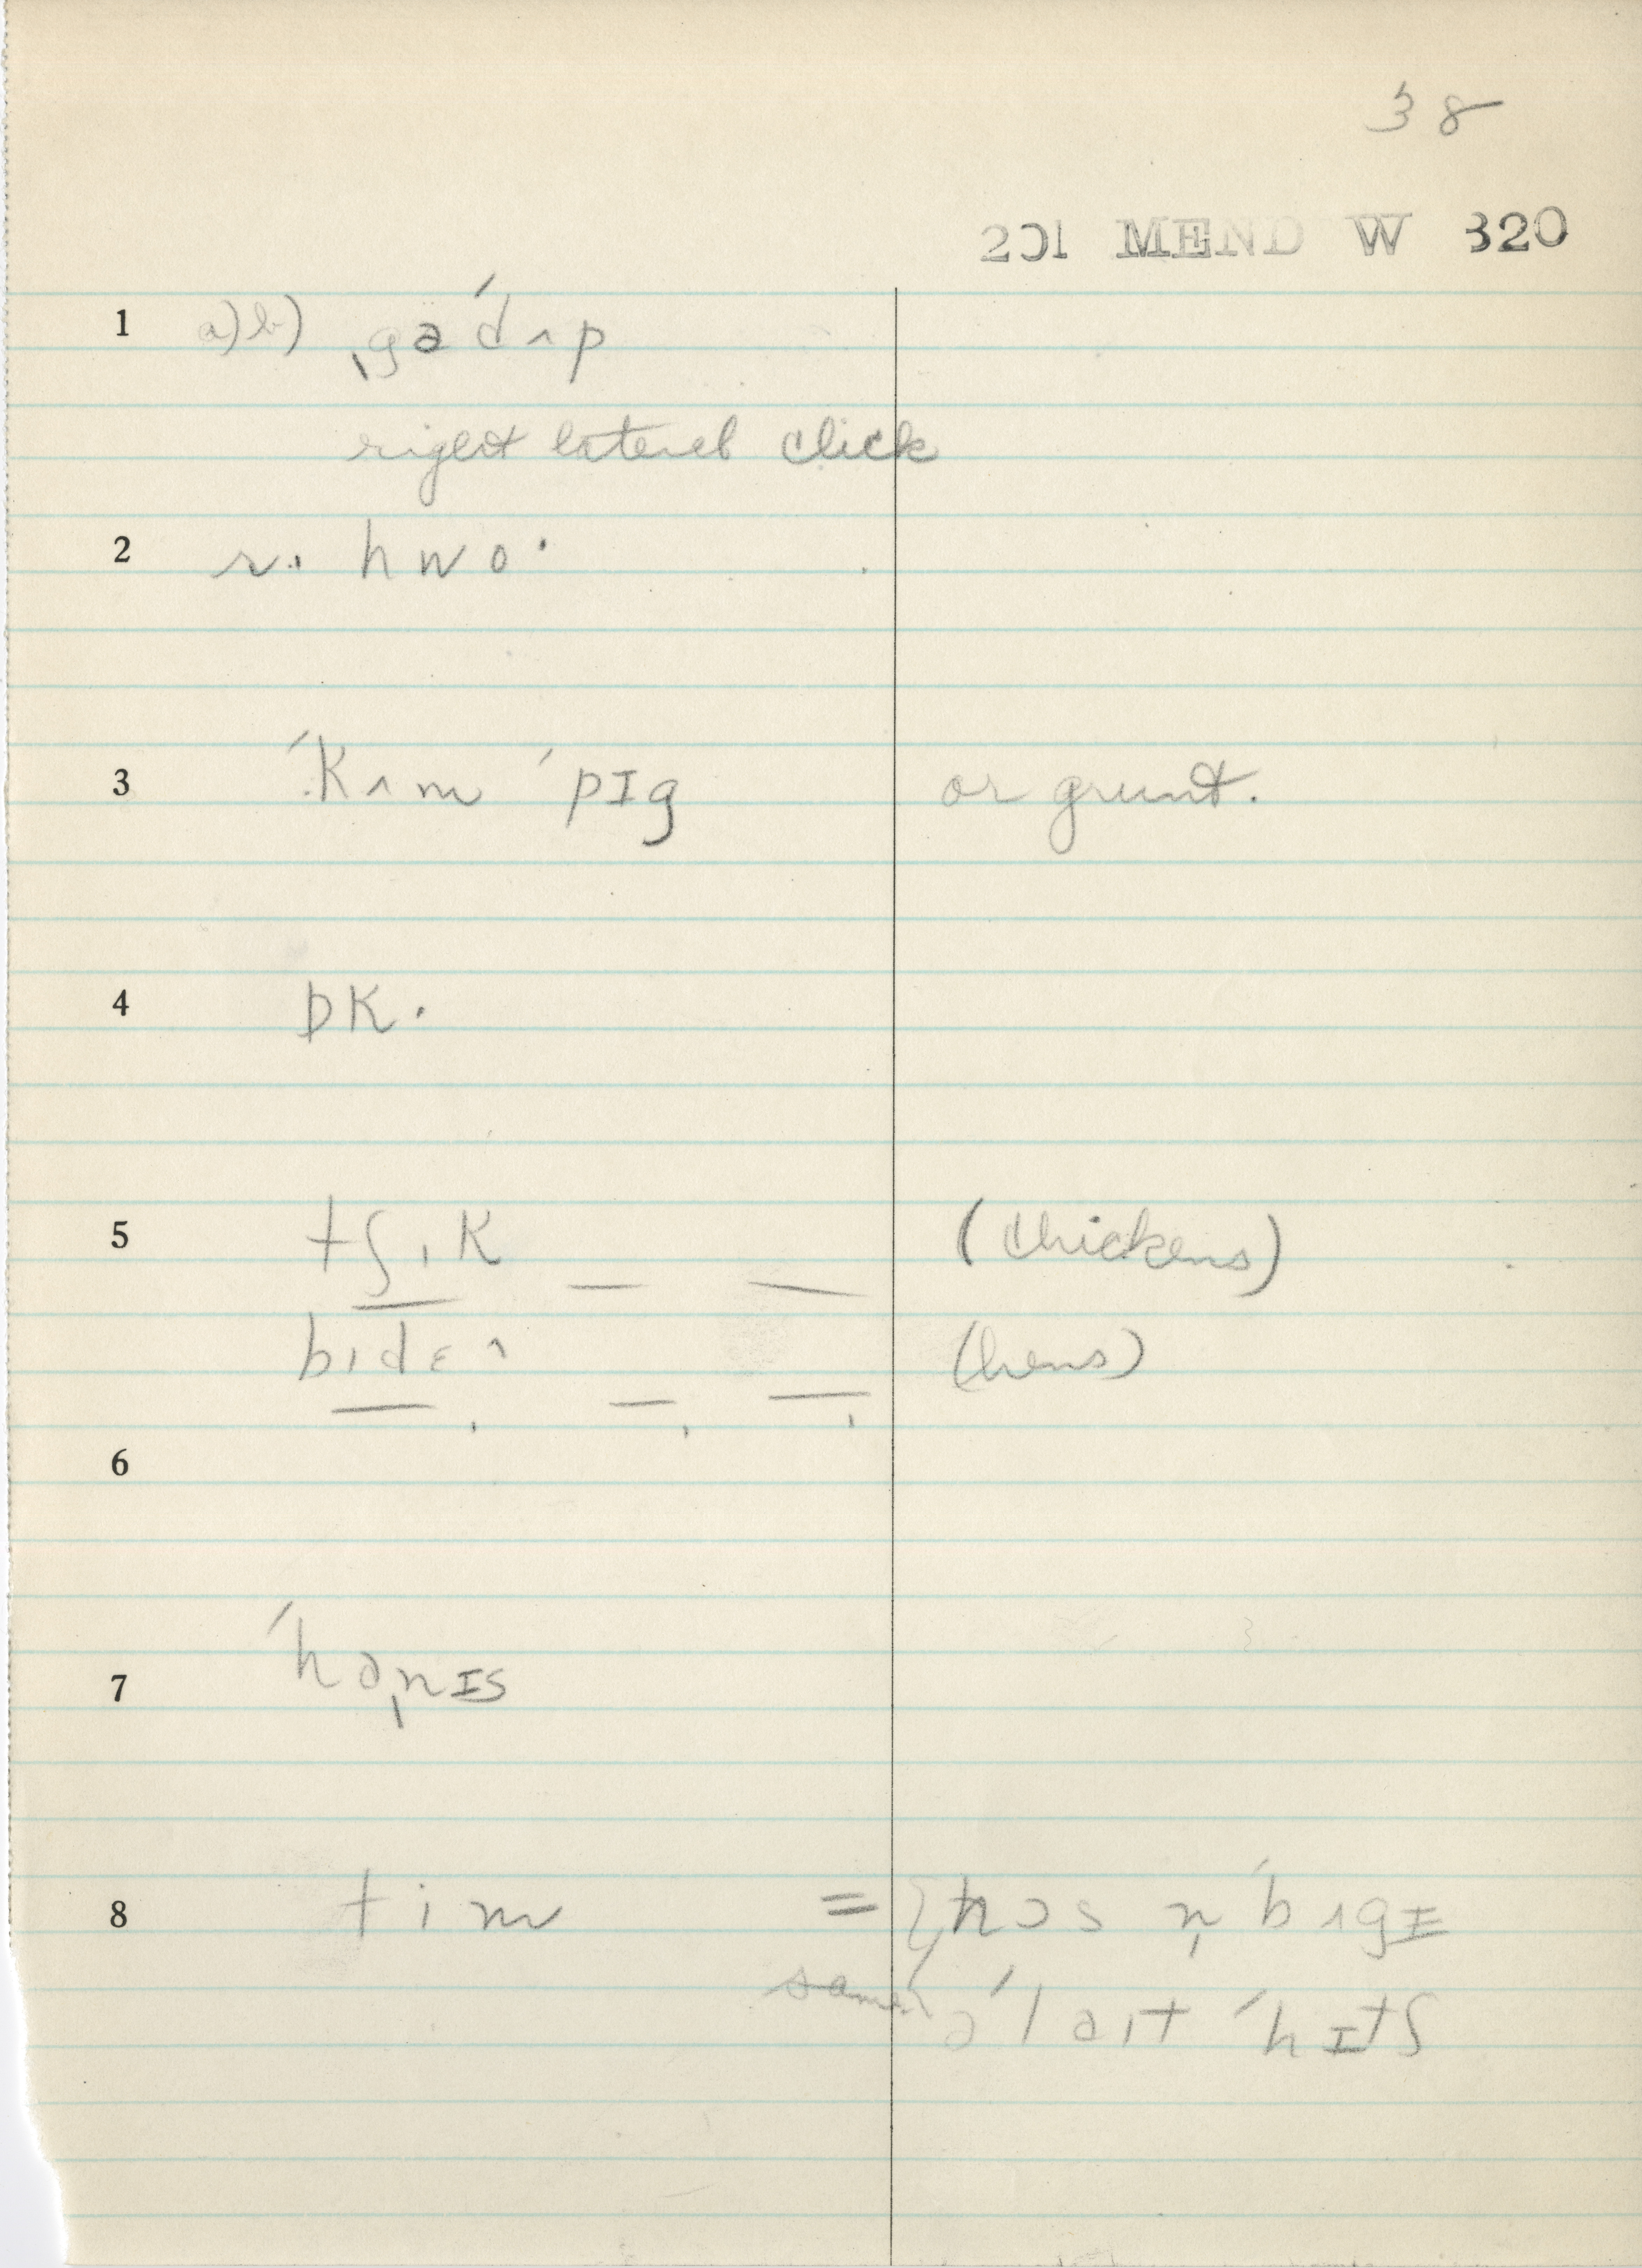 38
201 MEND W 320
1 a) b) ˌgəˈdʌp
right lateral click
2 r. hwo·
3 ˈkʌm ˈpɪg or grunt.
4 DK.
5 tʃɪk — — (chickens)
bɪdɛʌ (hens)
—, —, —,
6
7 ˈhɑn̩ɪs
8 tim = { hɔs n̩ ˈbʌgɪ
same { əˈlaɪt ˈhɪtʃ